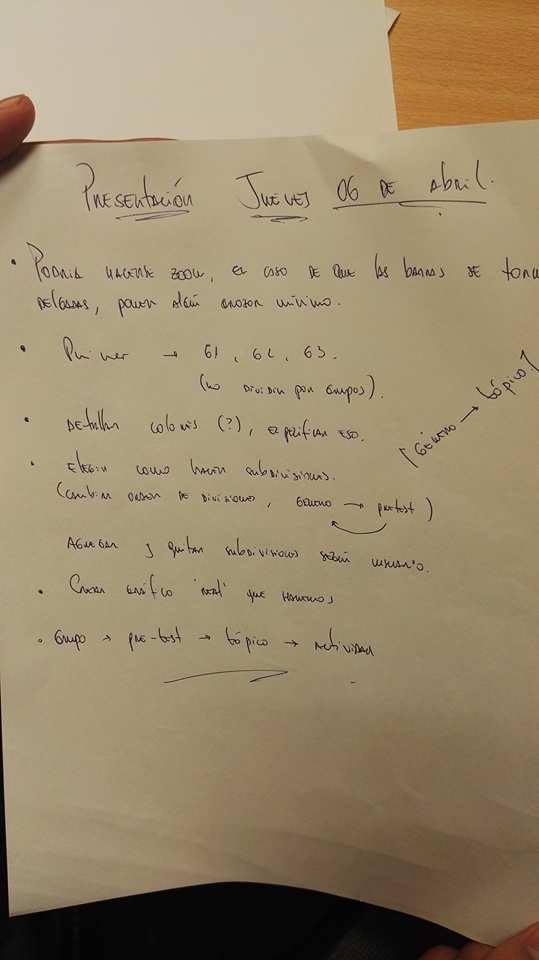 Presentación Jueves 06 de Abril.
• Podría hacerse zoom, el caso de que las barras se torn
delgadas, poner algún grozor mínimo.
• Primer → G1, G2, G3.
(no dividir por grupos).
[género → tópico]
• Detallar colores (?), expecificar eso.
• Elegir como hacer subdivisiones.
(cambiar orden de divisiones, genero → pretest)
Agregar y quitar subdivisiones según usuario.
• Crear gráfico 'real' que haremos
• Grupo → pre-test → tópico → actividad